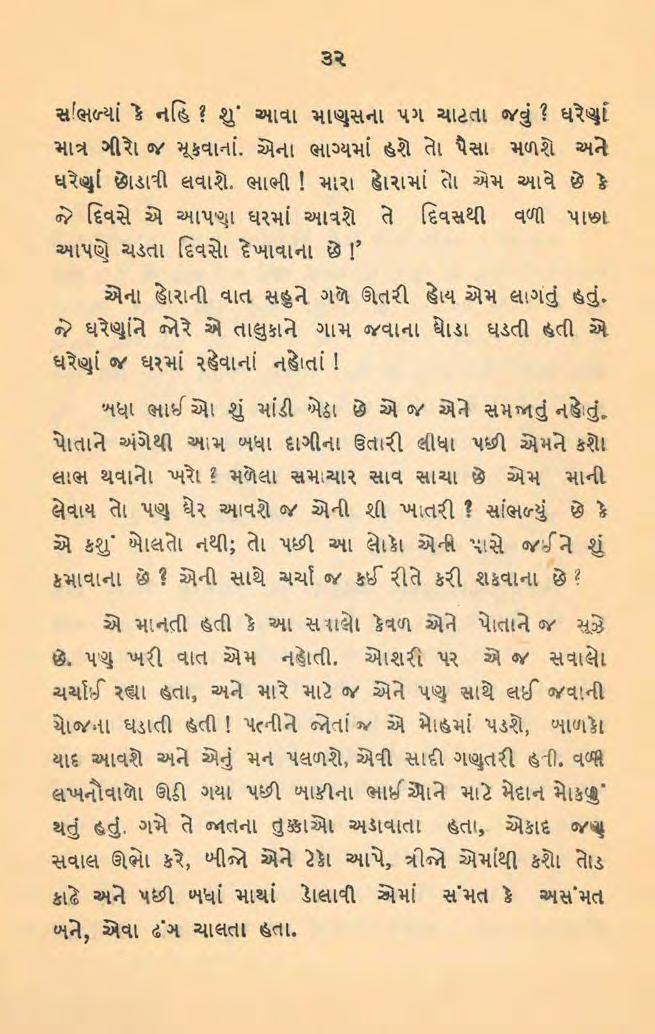 ૩૨
સાંભળ્યાં કે નહિ ? શું આવા માણસના પગ ચાટતા જવું ? ઘરેણાં
માત્ર ગીરો જ મૂકવાનાં. એના ભાગ્યમાં હશે તો પૈસા મળશે અને
ઘરેણાં છોડાવી લવાશે. ભાભી ! મારા હોરામાં તો એમ આવે છે કે
જે દિવસે એ આપણા ઘરમાં આવશે તે દિવસથી વળી પાછા
આપણે ચડતા દિવસો દેખાવાના છે !’
એના હોરાની વાત સહુને ગળે ઊતરી હોય એમ લાગતું હતું.
જે ઘરેણાંને જોરે એ તાલુકાને ગામ જવાના ઘોડા ઘડતી હતી એ
ઘરેણાં જ ઘરમાં રહેવાનાં નહોતાં !
બધા ભાઈઓ શું માંડી બેઠા છે એ જ એને સમજાતું નહોતું.
પોતાને અંગેથી આમ બધા દાગીના ઉતારી લીધા પછી એમને કશો
લાભ થવાનો ખરો ? મળેલા સમાચાર સાવ સાચા છે એમ માની
લેવાય તો પણ ઘેર આવશે જ એની શી ખાતરી ? સાંભળ્યું છે કે
એ કશું બોલતો નથી; તો પછી આ લોકો એની પાસે જઈને શું
કમાવાના છે ? એની સાથે ચર્ચા જ કઈ રીતે કરી શકવાના છે ?
એ માનતી હતી કે આ સવાલો કેવળ એને પોતાને જ સૂઝે
છે. પણ ખરી વાત એમ નહોતી. ઓશરી પર એ જ સવાલો
ચર્ચાઈ રહ્યા હતા, અને મારે માટે જ એને પણ સાથે લઈ જવાની
યોજના ઘડાતી હતી ! પત્નીને જોતાં જ એ મોહમાં પડશે, બાળકો
યાદ આવશે અને એનું મન પલળશે, એવી સાદી ગણતરી હતી. વળી
લખનૌવાળો ઊડી ગયા પછી બાકીના ભાઈઓને માટે મેદાન મોકળું
થતું હતું. ગમે તે જાતના તુક્કાઓ અડાવાતા હતા, એકાદ જણ
સવાલ ઊભો કરે, બીજો એને ટેકો આપે, ત્રીજો એમાંથી કશો તોડ
કાઢે અને પછી બધાં માથાં ડોલાવી એમાં સંમત કે અસંમત
બને, એવા ઢંગ ચાલતા હતા.